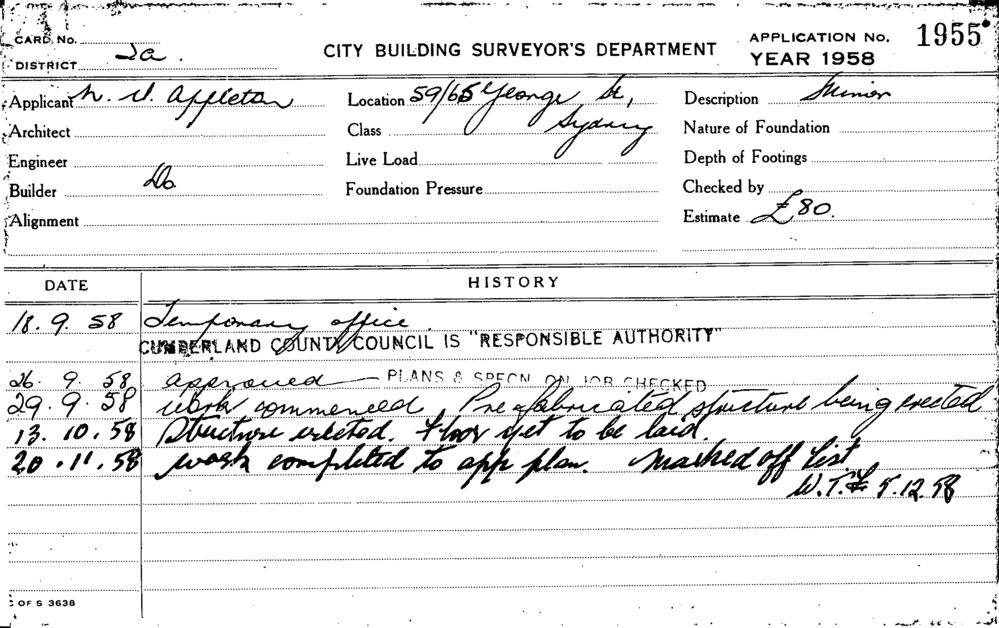 CARD NO.
DISTRICT 2a.
CITY BUILDING SURVEYOR'S DEPARTMENT
APPLICATION NO. 1955
YEAR 1958
Applicant N. V. Appleton
Architect
Engineer
Builder Do
Alignment
Location 59/65 George St,
Sydney
Class
Live Load
Foundation Pressure
Description Minor
Nature of Foundation
Depth of Footings
Checked by
Estimate £80.
DATE HISTORY
18. 9. 58 Temporary office.
CUMBERLAND COUNTY COUNCIL IS "RESPONSIBLE AUTHORITY"
26. 9. 58 approved — PLANS & SPECN. ON JOB CHECKED
29. 9. 58 work commenced. Prefabricated structure being erected
13. 10. 58 Structure erected. Floor yet to be laid.
20. 11. 58 work completed to app plan. Marked off list.
W.T.F 5.12.58
C OF S 3638